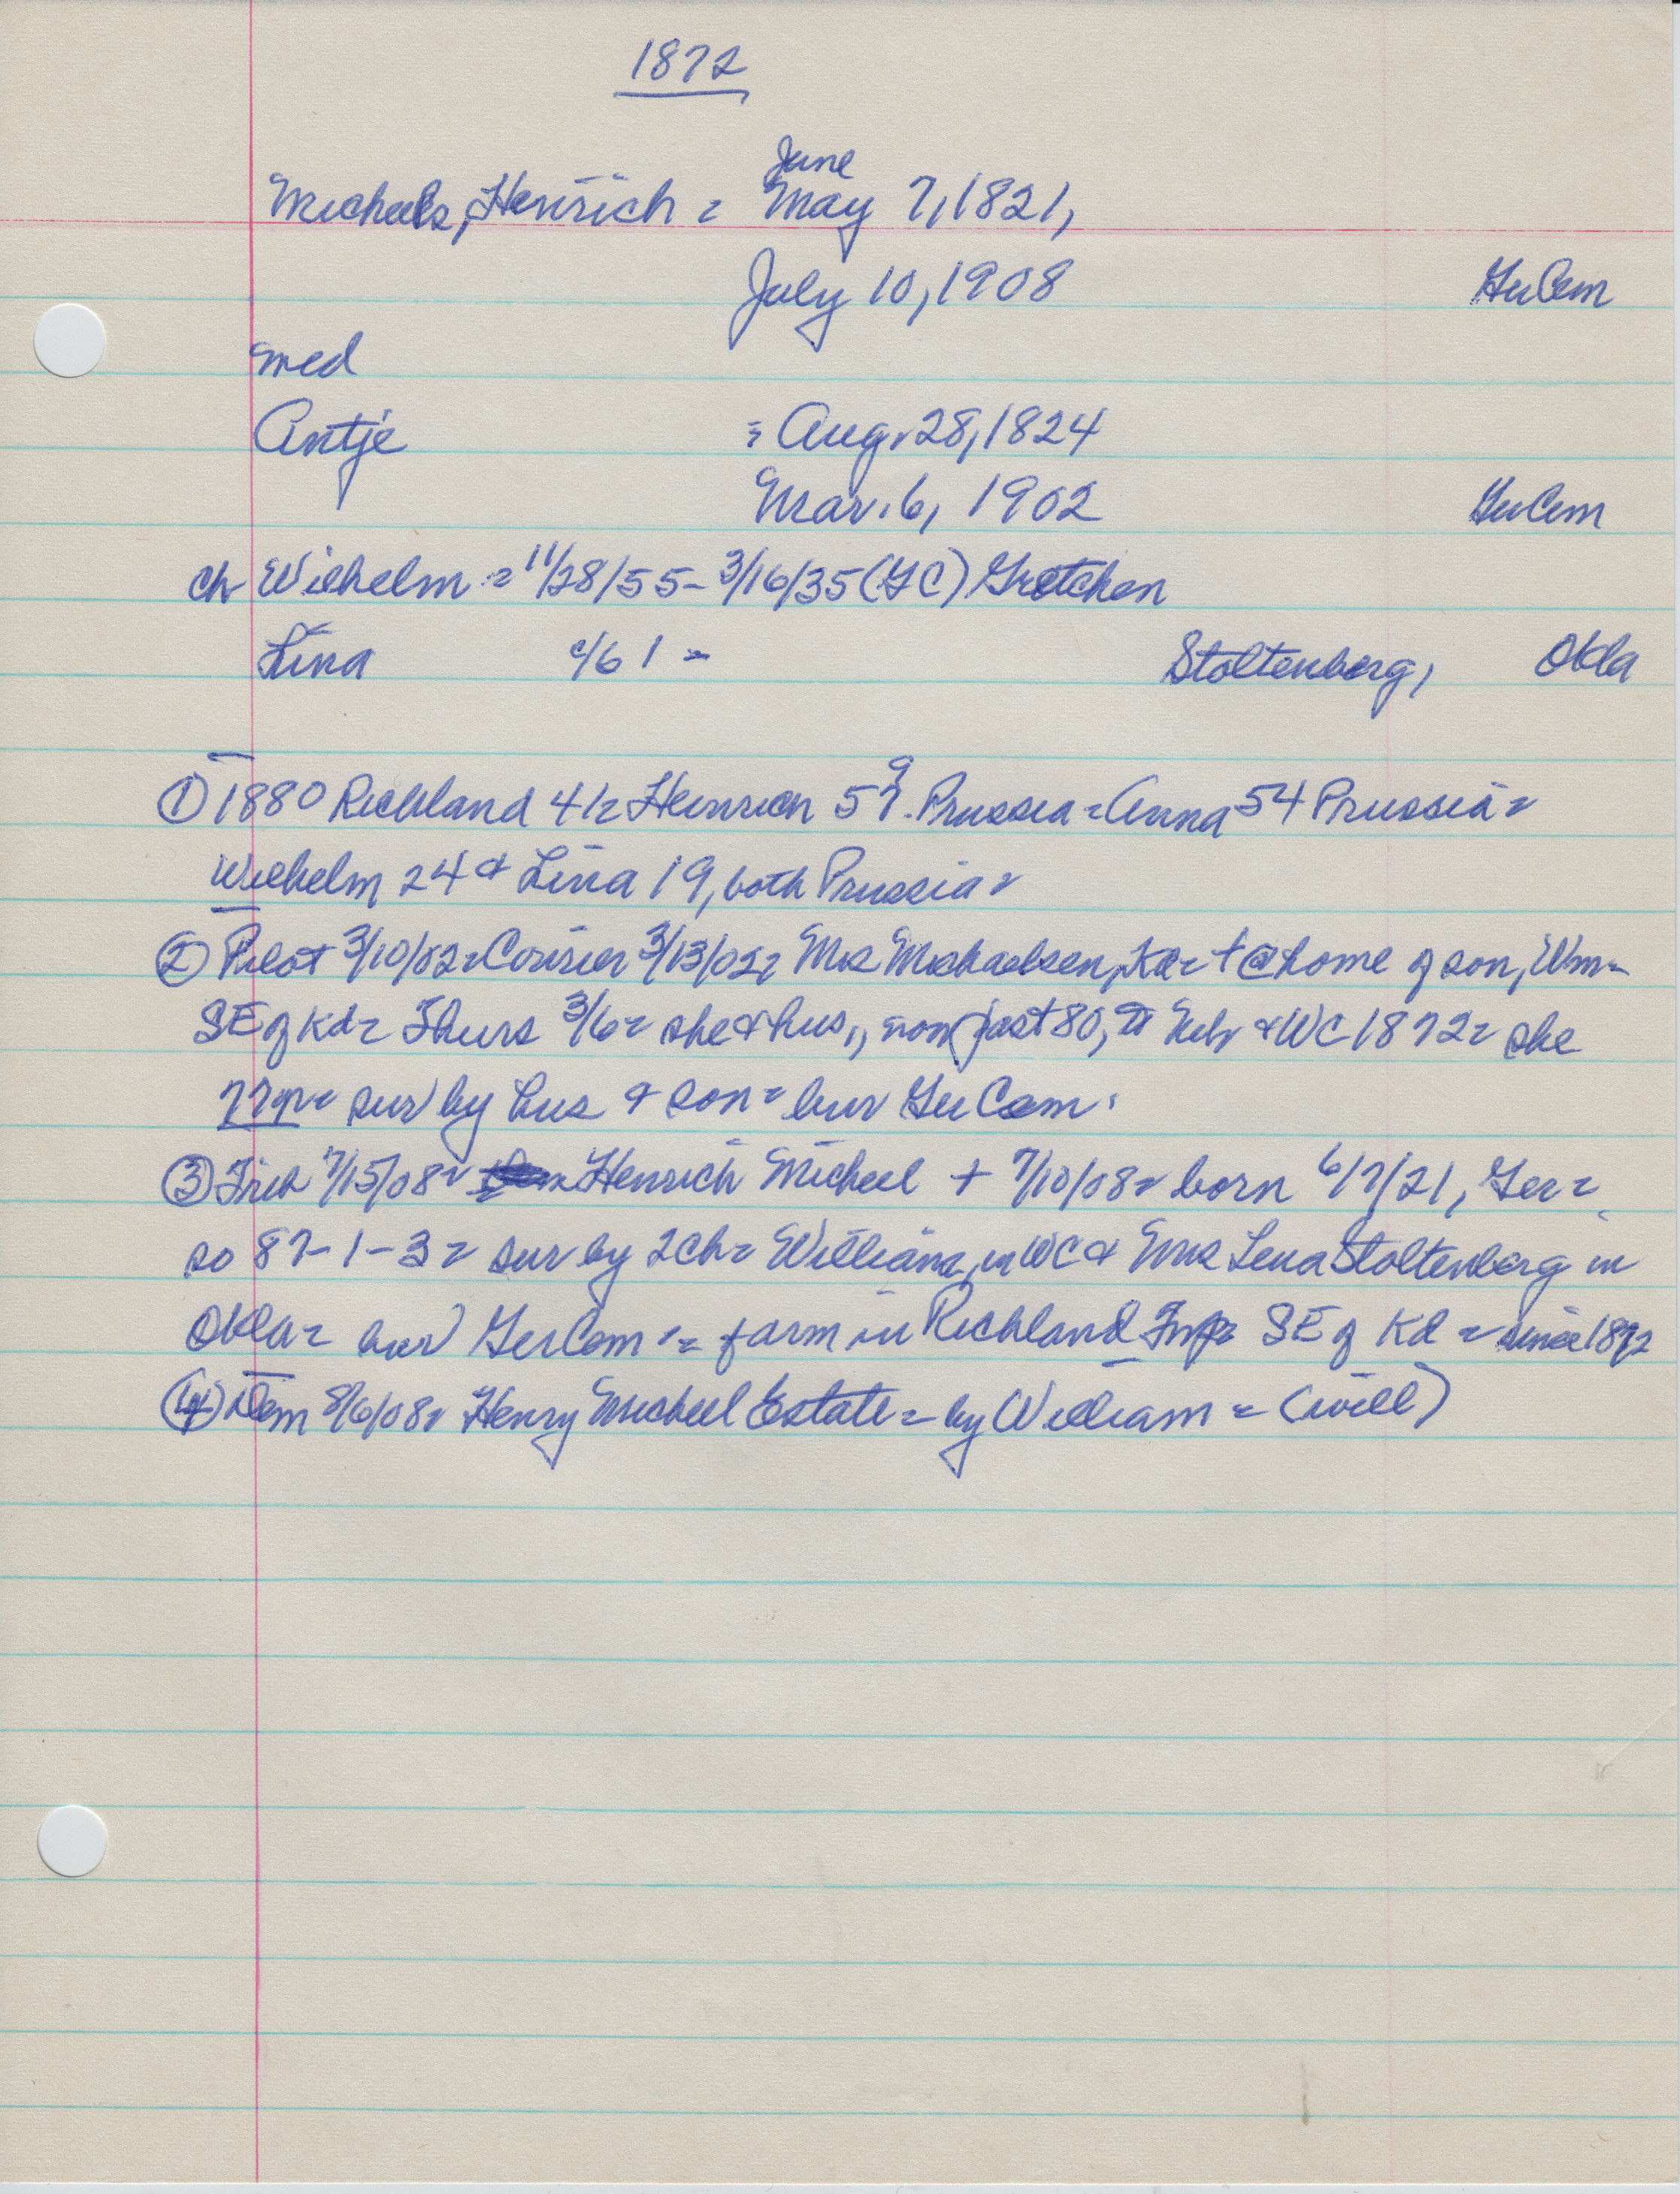 1872
June
Micheels, Henrich = May 7, 1821,
July 10, 1908 GerCem
med
Antje = Aug. 28, 1824
Mar. 6, 1902 GerCem
ch Wilhelm = 11/28/55 - 3/16/35 (GC) Gretchen
Lina c/61 - Stoltenberg, Okla
① 1880 Richland 412 Heinrich 59. Prussia = Anna 54 Prussia =
Wilhelm 24 & Lina 19, both Prussia =
② Pilot 3/10/02 = Courier 3/13/02 = Mrs Michaelsen, Kd = + @ home of son, Wm -
SE of Kd = Thurs 3/6 = she & hus., now past 80, Neb & WC 1872 = she
77 yr = sur by hus & son = bur Ger Cem.
③ 7/15/08 = Henrich Micheel + 7/10/08 = born 6/7/21, Ger =
so 87-1-3 = sur by 2ch = William, in WC & Mrs Lena Stoltenberg in
Okla = bur GerCem = farm in Richland Twp SE of Kd = since 1872
④ Dem 8/6/08 = Henry Micheel Estate = by William = (will)